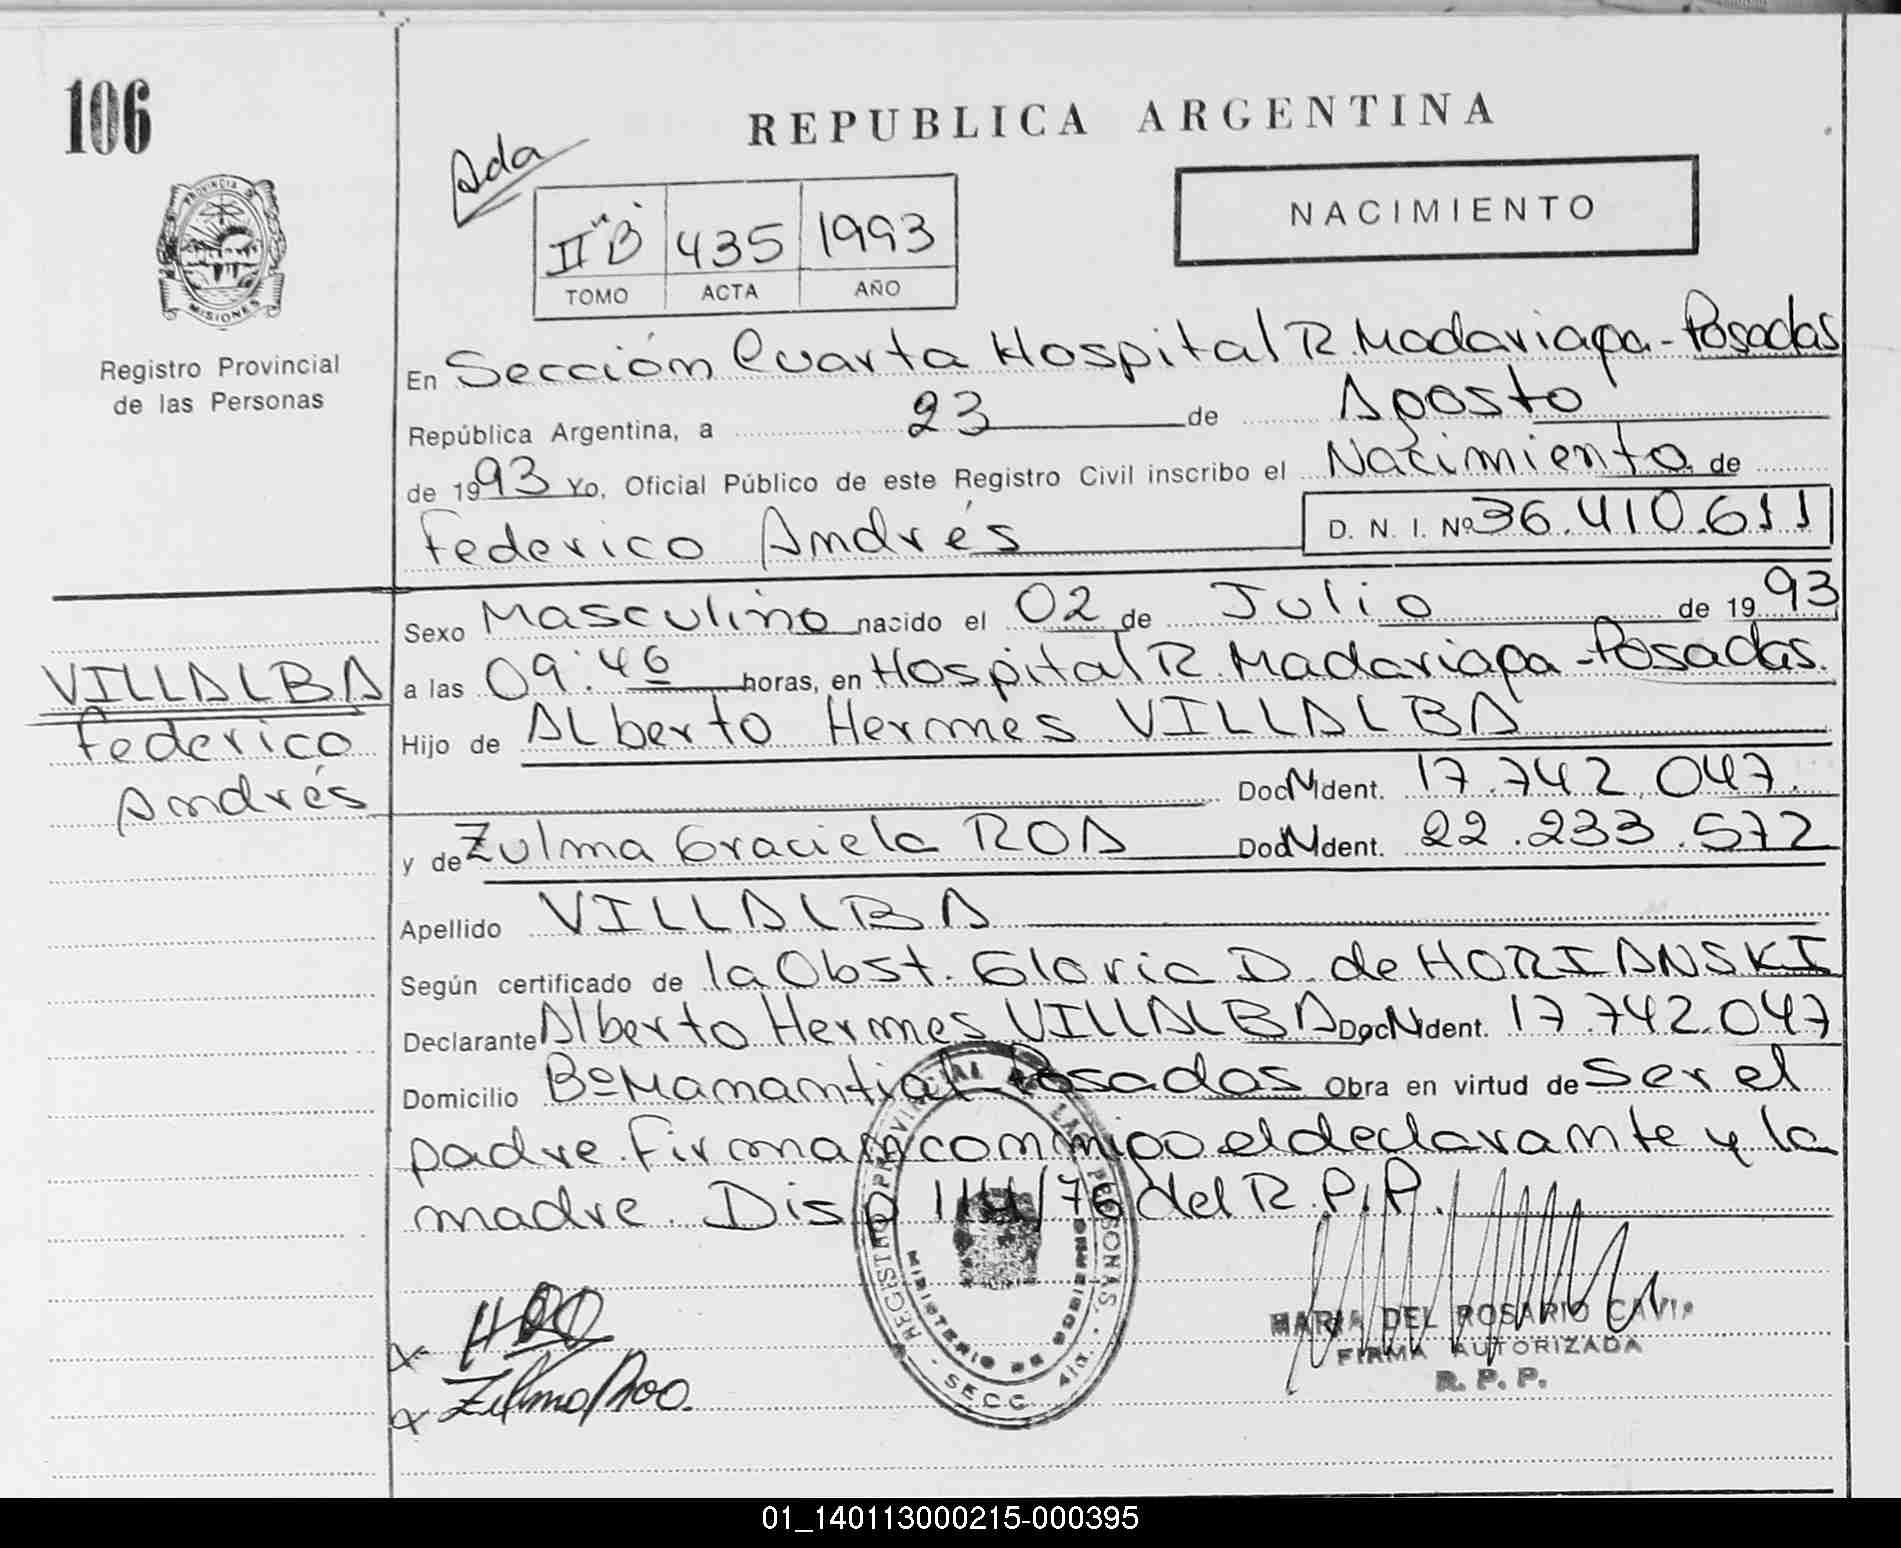 106
REPUBLICA ARGENTINA
Ada
NACIMIENTO
II "B" 435 1993
TOMO ACTA AÑO
PROVINCIA DE MISIONES
Registro Provincial
de las Personas
En Sección Cuarta Hospital R. Madariaga - Posadas
República Argentina, a 23 de Agosto
de 1993 Yo, Oficial Público de este Registro Civil inscribo el Nacimiento de
Federico Andrés D. N. I. Nº 36.410.611
Sexo Masculino nacido el 02 de Julio de 1993
a las 09:46 horas, en Hospital R. Madariaga - Posadas.
VILLALBA
Federico
Andrés
Hijo de Alberto Hermes VILLALBA
Doc. Ident. 17.742.047.
y de Zulma Graciela ROA Doc. Ident. 22.233.572
Apellido VILLALBA
Según certificado de la Obst. Gloria D. de HORIANSKI
Declarante Alberto Hermes VILLALBA Doc. Ident. 17.742.047
Domicilio Bº Manantial - Posadas Obra en virtud de ser el
padre. Firman conmigo el declarante y la
madre. Disp 114/76 del R.P.P.
REGISTRO PROVINCIAL DE LAS PERSONAS.
MINISTERIO DE GOBIERNO
SECC. 4ta.
MARIA DEL ROSARIO
FIRMA AUTORIZADA
R. P. P.
x
x Zulma Roa.
01_140113000215-000395